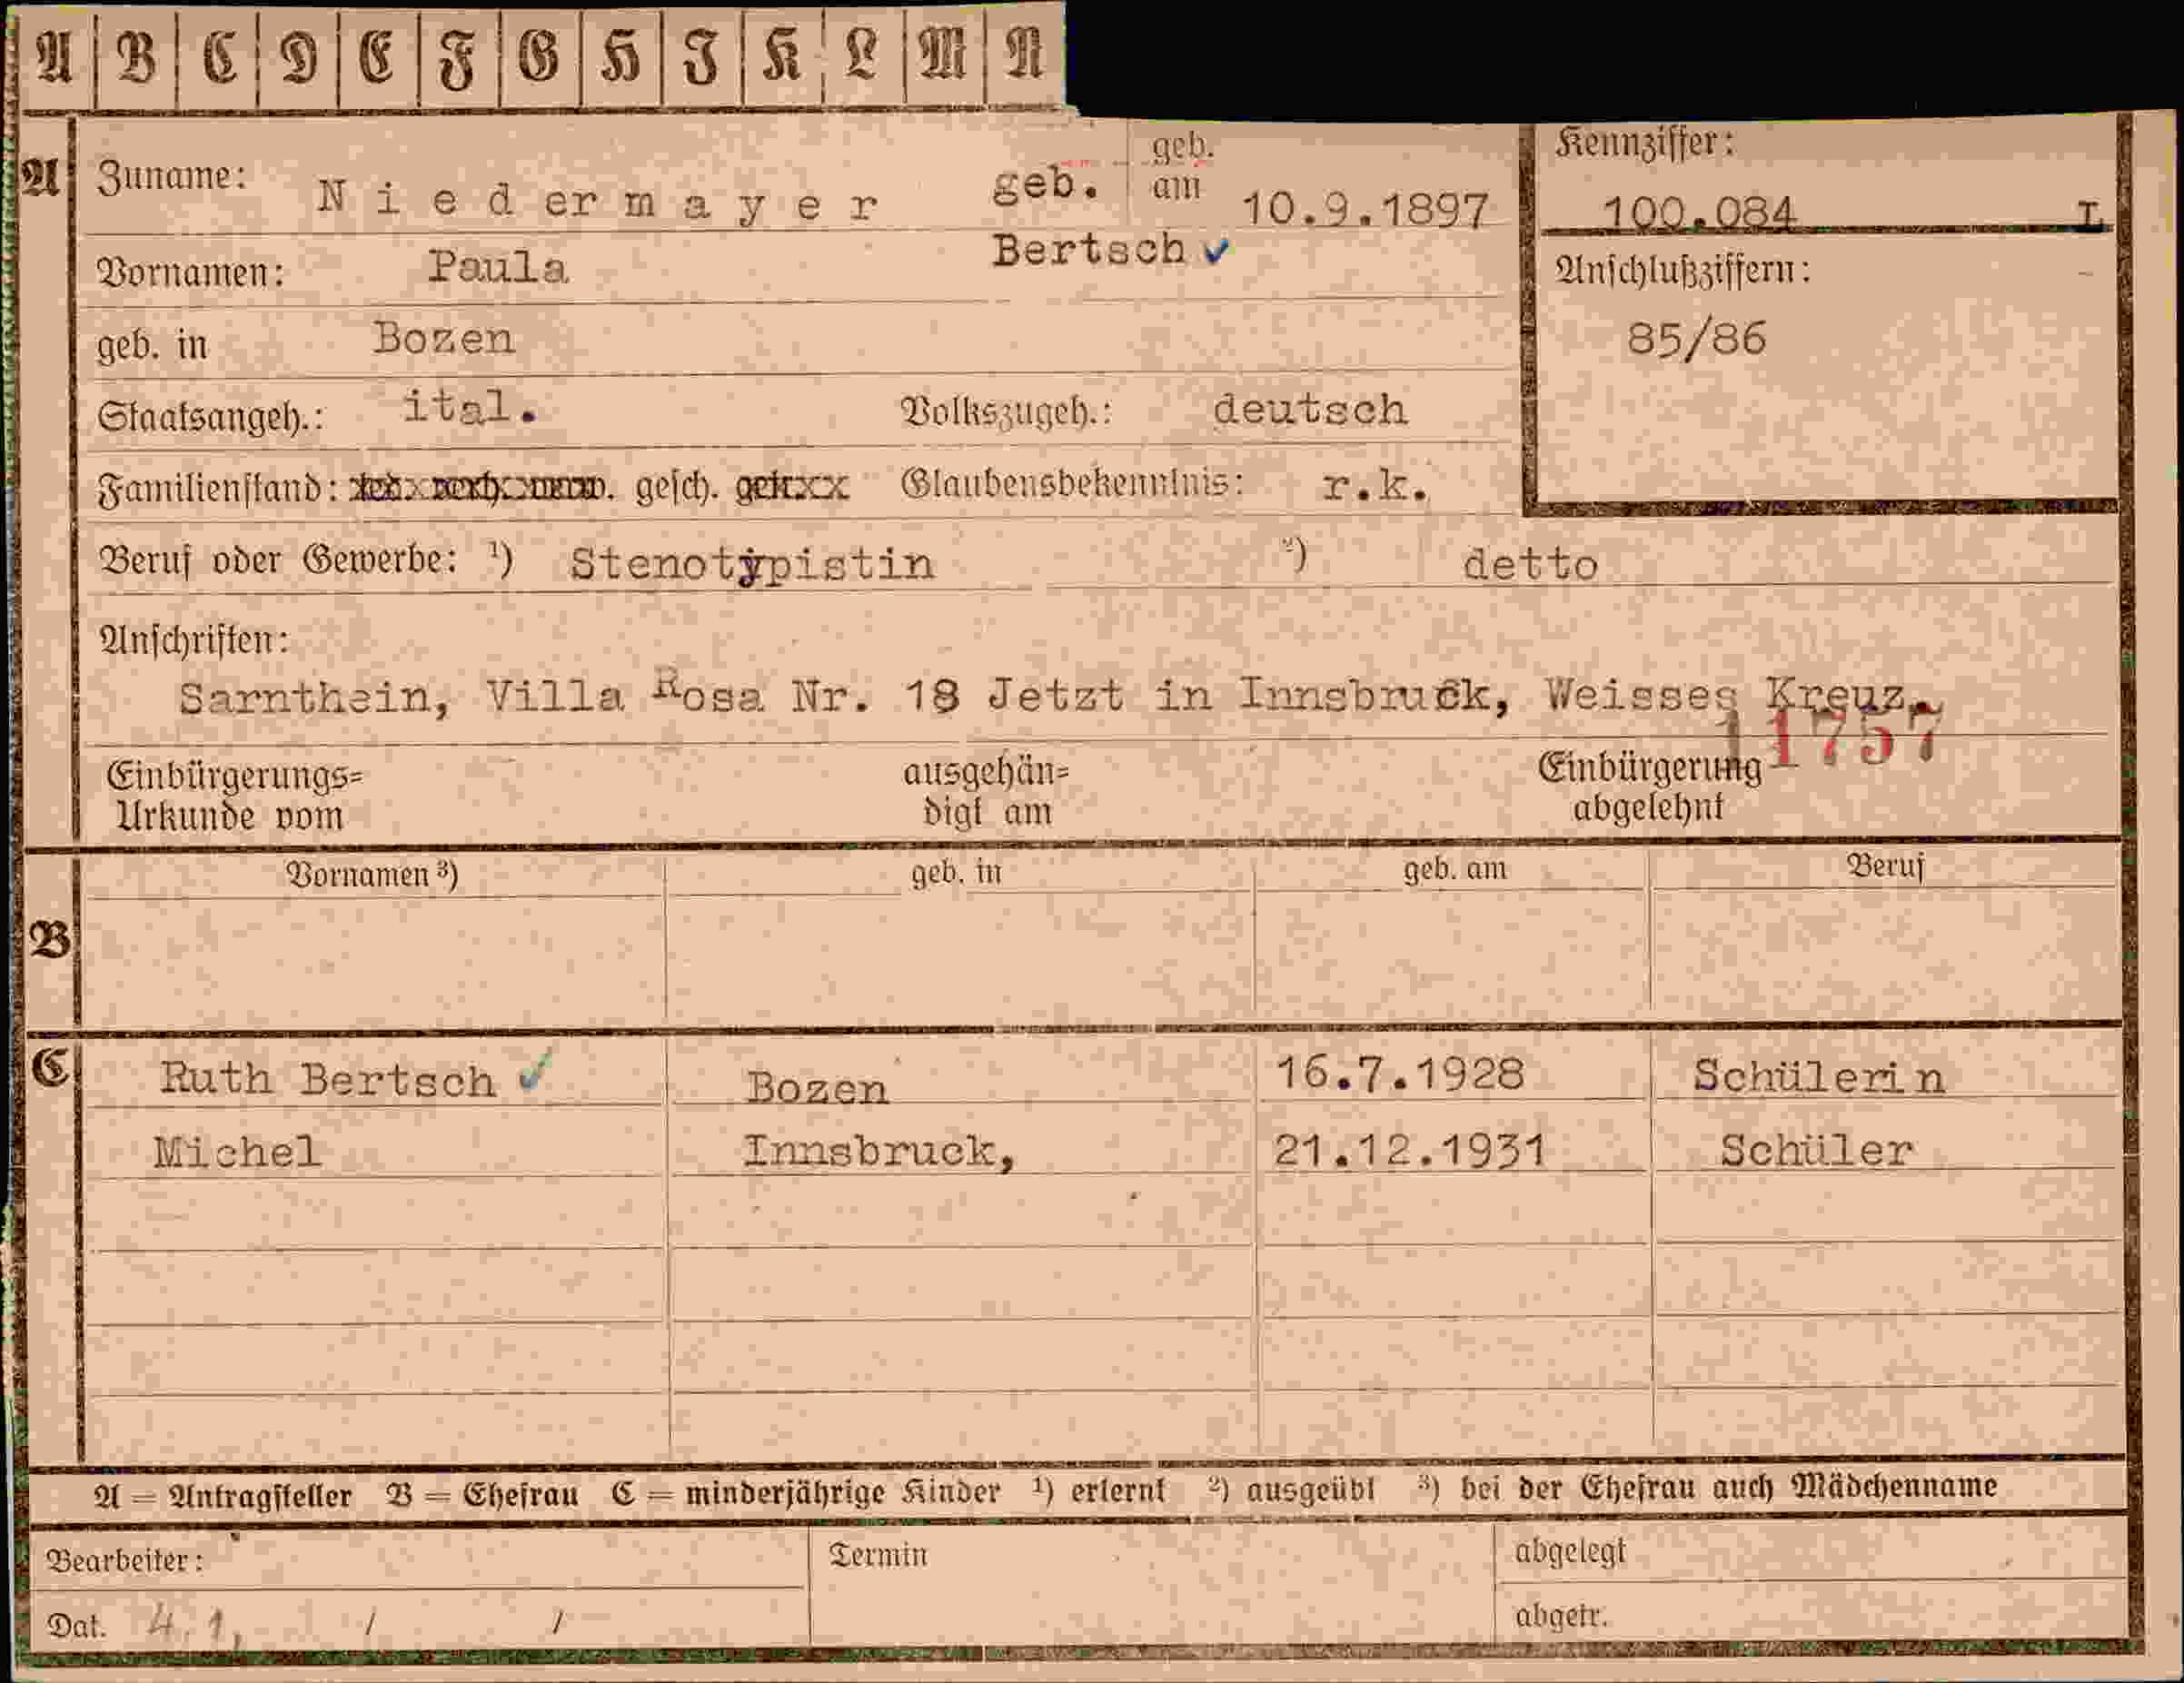 A B C D E F G H I K L M N
A Zuname: Niedermayer geb. geb. am 10.9.1897 Kennziffer: 100.084 I
Vornamen: Paula Bertsch ✓ Anschlußziffern: -
geb. in Bozen 85/86
Staatsangeh.: ital. Volkszugeh.: deutsch
Familienstand: gesch. Glaubensbekenntnis: r.k.
Beruf oder Gewerbe: ¹) Stenotypistin ²) detto
Anschriften:
Sarnthein, Villa Rosa Nr. 18 Jetzt in Innsbruck, Weisses Kreuz.
11757
Einbürgerungs= ausgehän= Einbürgerung
Urkunde vom digt am abgelehnt
Vornamen ³) geb. in geb. am Beruf
B
C Ruth Bertsch ✓ Bozen 16.7.1928 Schülerin
Michel Innsbruck, 21.12.1931 Schüler
A = Antragsteller B = Ehefrau C = minderjährige Kinder ¹) erlernt ²) ausgeübt ³) bei der Ehefrau auch Mädchenname
Bearbeiter: Termin abgelegt
Dat. 4.1. / / abgetr.